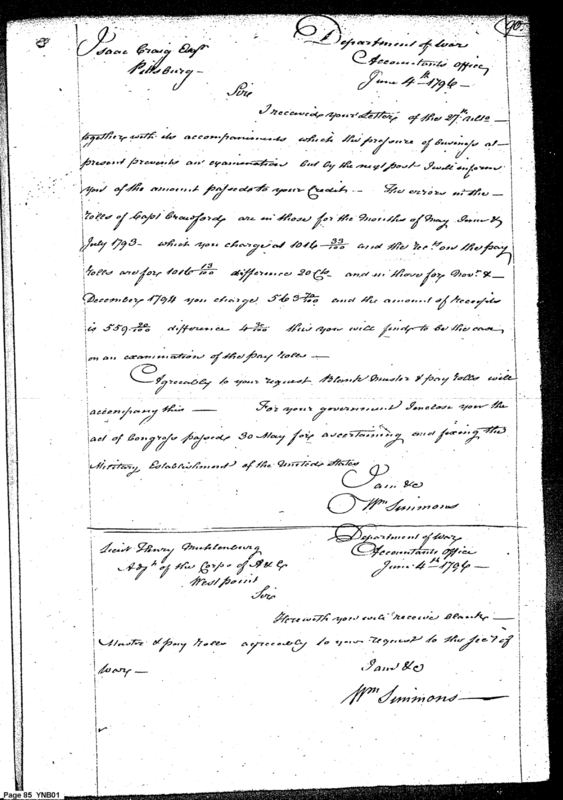 90.
Isaac Craig Esqr
Pittsburg —
Department of War
Accountants Office
June 4th 1796 —
Sir
I received your Letter of the 27th ulto —
together with its accompaniments which the pressure of business at
present prevents an examination but by the next post I will inform
you of the amount passed to your Credit — The errors in the
rolls of Capt Crawford are in those for the Months of May June &
July 1793 which you charge at 1016 33/100 and the recs on the pay
rolls are for 1016 13/100 difference 20 Cts and in those for Novr &
December 1794 you charge 563 and the amount of receipts
is 559 difference 4 this you will find to be the case
on an examination of the pay rolls —
Agreeably to your request Blank Muster & pay rolls will
accompany this — For your government I inclose you the
act of Congress passed 30 May for ascertaining and fixing the
Military Establishment of the United States
I am &c
Wm Simmons
Lieut Henry Muhlenburg
Adjt of the Corps of A & E
West point
Department of War
Accountants Office
June 4th 1796 —
Sir
Herewith you will receive blank
Muster & pay rolls agreeably to your request to the Secy of
War —
I am &c
Wm Simmons —
Page 85 YNB01